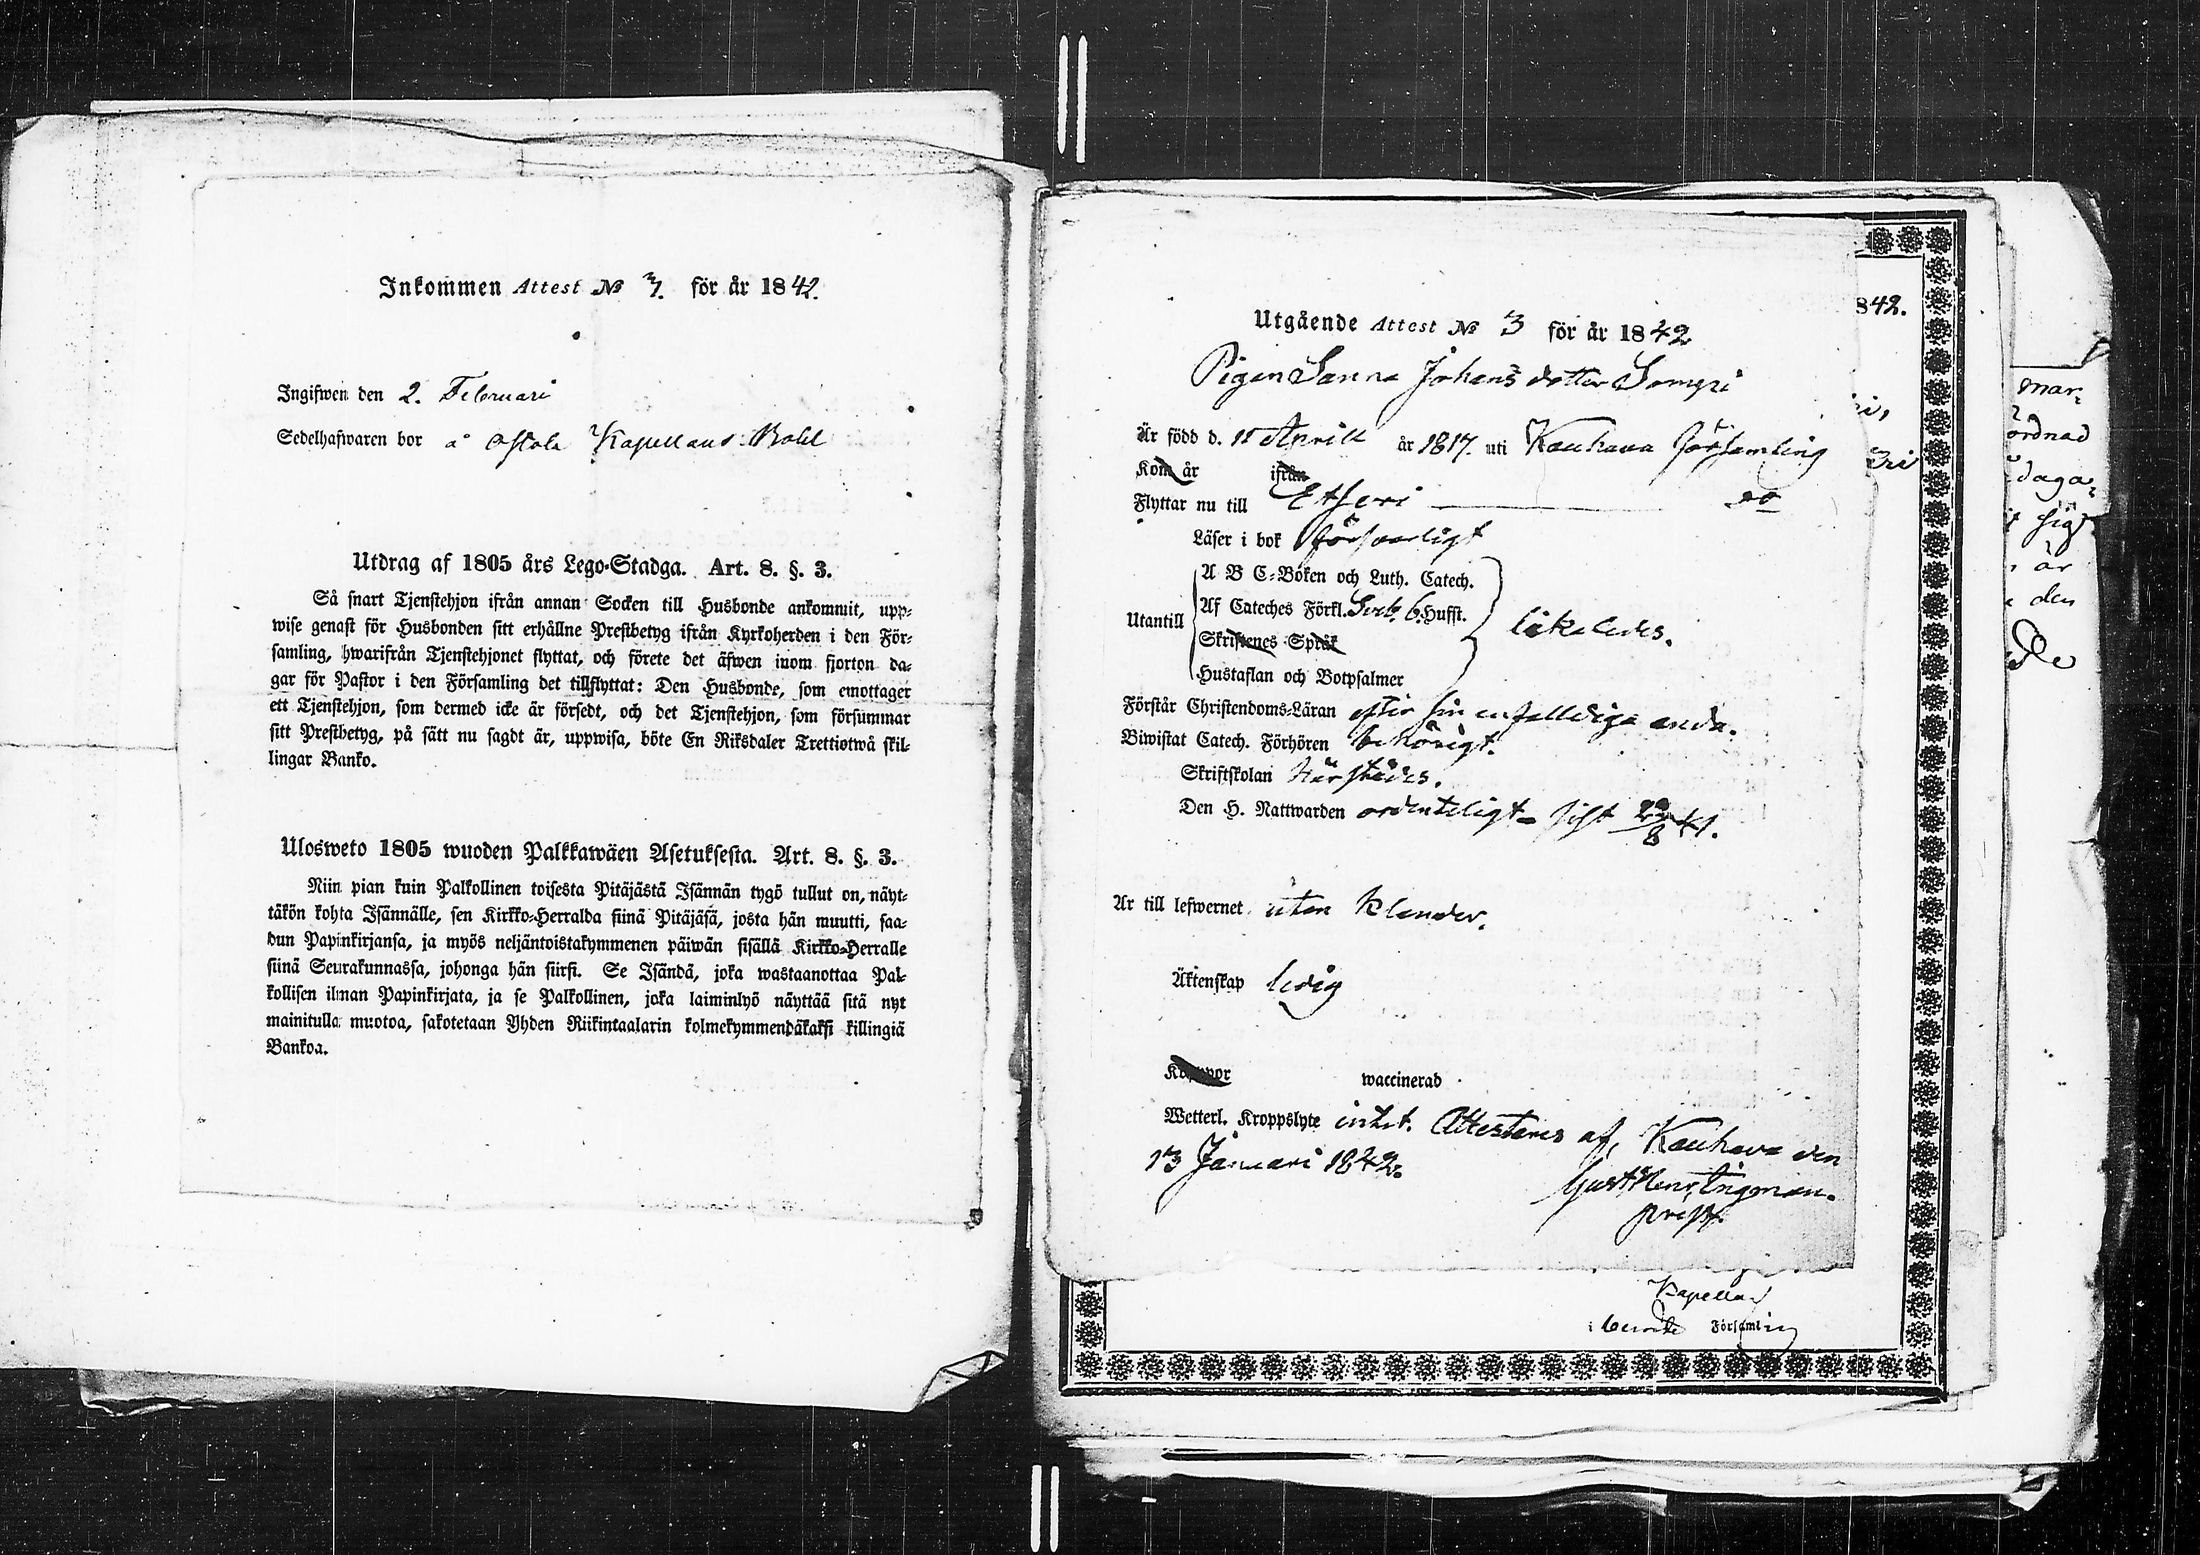 Inkommen Attest No 3. för år 1842.
Ingifwen den 2. Februari
Sedelhafwaren bor å Ostola Kapellans Bohl
Utdrag af 1805 års Lego-Stadga. Art. 8. §. 3.
Så snart Tjenstehjon ifrån annan Socken till Husbonde ankommit, upp-
wise genast för Husbonden sitt erhållne Prestbetyg ifrån Kyrkoherden i den För-
samling, hwarifrån Tjenstehjonet flyttat, och förete det äfwen inom fjorton da-
gar för Pastor i den Församling det tillflyttat: Den Husbonde, som emottager
ett Tjenstehjon, som dermed icke är försedt, och det Tjenstehjon, som försummar
sitt Prestbetyg, på sätt nu sagdt är, uppwisa, böte En Riksdaler Trettiotwå skil-
lingar Banko.
Ulosweto 1805 wuoden Palkkawäen Asetuksesta. Art. 8. §. 3.
Niin pian kuin Palkollinen toisesta Pitäjästä Isännän tygö tullut on, näyt-
täkön kohta Isännälle, sen Kirkko-Herralda siinä Pitäjäsä, josta hän muutti, saa-
dun Papinkirjansa, ja myös neljäntoistakymmenen päiwän sisällä Kirkko-Herralle
siinä Seurakunnassa, johonga hän siirsi. Se Isändä, joka wastaanottaa Pal-
kollisen ilman Papinkirjata, ja se Palkollinen, joka laiminlyö näyttää sitä nyt
mainitulla muotoa, sakotetaan Yhden Riikintaalarin kolmekymmendäkaksi killingiä
Bankoa.
Utgående Attest No 3 för år 1842
Pigan Sanna Johans dotter Sompi
Är född d. 11 Aprill år 1817. uti Kauhava församling
Kom år ifrån
Flyttar nu till Etseri do
Läser i bok försvarligt
A B C-Boken och Luth. Catech.
Utantill Af Cateches Förkl. Sveb. 6. Hufst. likaledes.
Skriftenes Språk
Hustaflan och Botpsalmer
Förstår Christendoms-Läran efter sin enfalldiga anda.
Biwistat Catech. Förhören behörigt.
Skriftskolan härstädes.
Den H. Nattwarden ordenteligt sist 22/8 41.
Är till lefwernet utan klander.
Äktenskap ledig
Koppor waccinerad
Wetterl. Kroppslyte intet. Attesteras af, Kauhava den
13 Januari 1842.
Gust Henr Ingman.
prest.
842.
Kapellan
Församling
mar-
ordnad
daga-
sig
är
den